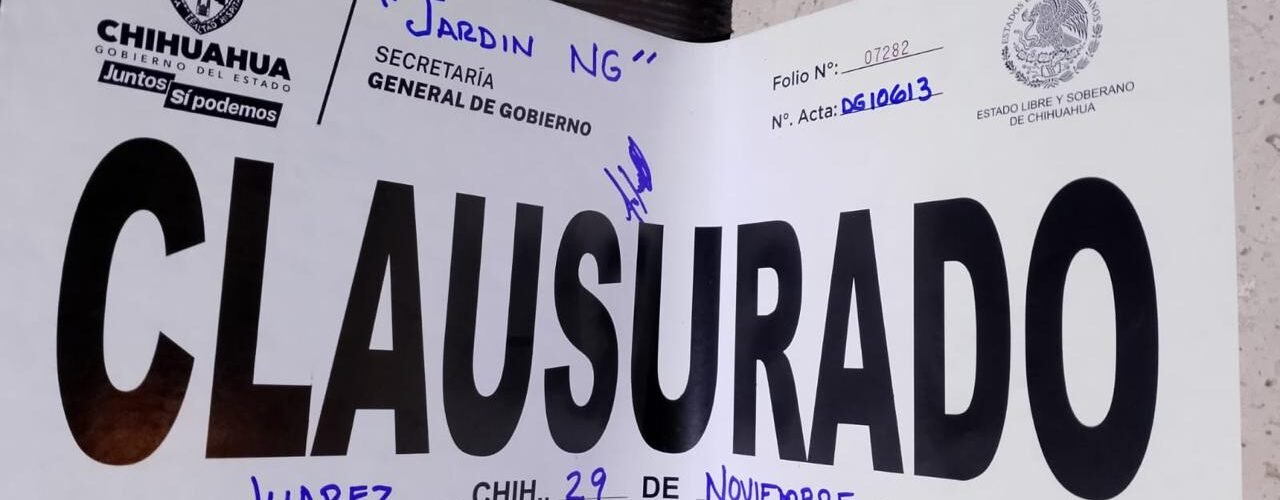 CHIHUAHUA
GOBIERNO DEL ESTADO
Juntos
Sí podemos
"JARDIN NG"
SECRETARÍA
GENERAL DE GOBIERNO
Folio N°: 07282
N°. Acta: DG10613
ESTADO LIBRE Y SOBERANO
DE CHIHUAHUA
CLAUSURADO
JUAREZ CHIH., 29 DE NOVIEMBRE